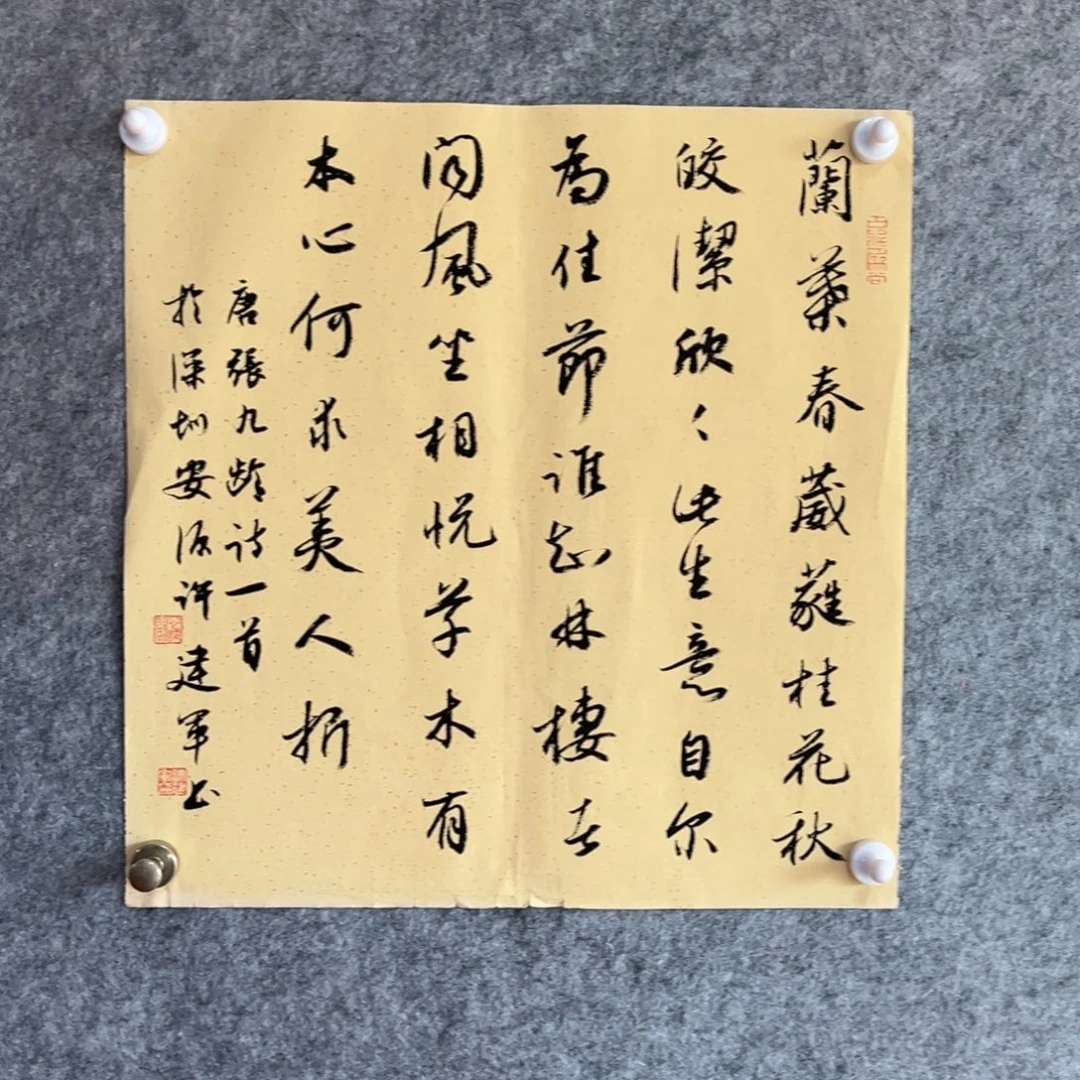 蘭葉春葳蕤桂花秋
皎潔欣々此生意自尔
為佳節誰知林棲者
闻風坐相悦草木有
本心何求美人折
唐張九龄诗一首
於深圳安派许建軍书